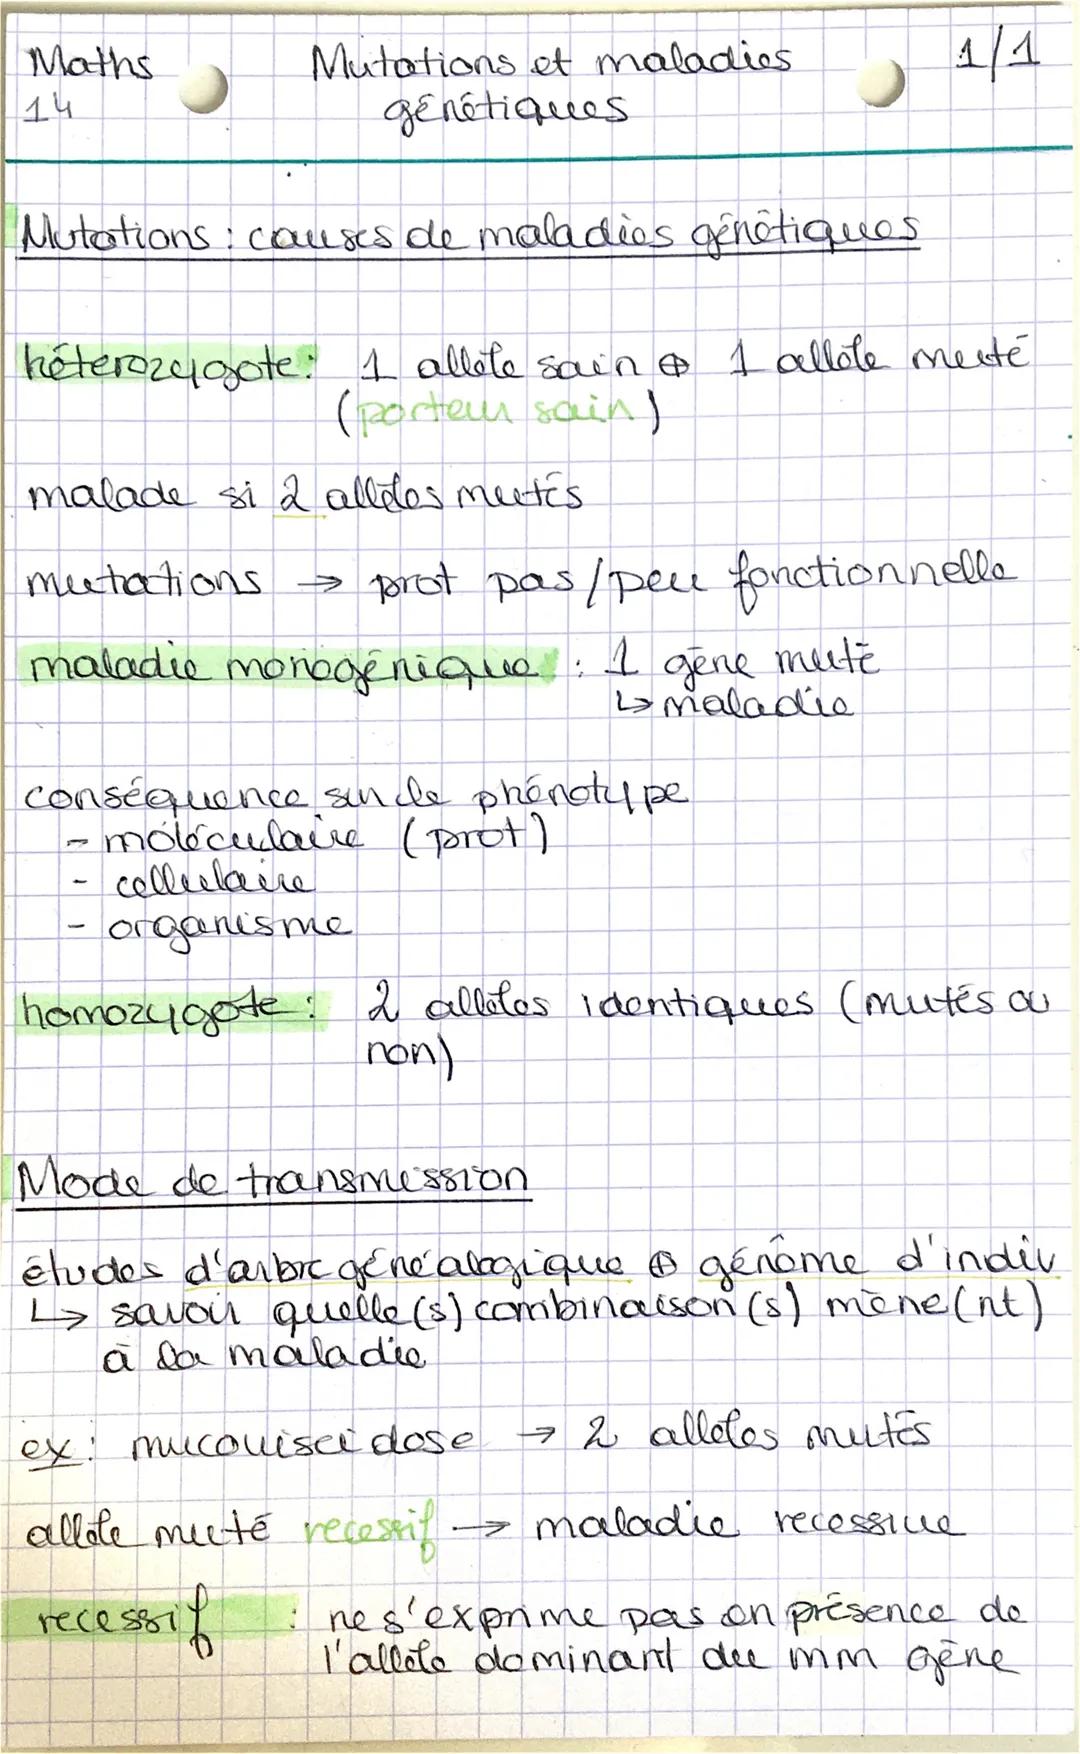 Maths
14
Mutations et maladies
génétiques
1/1
Mutations : causes de maladies génétiques
héterozygote : 1 allèle sain ⊕ 1 allèle muté
(porteur sain)
malade si 2 allèles mutés
mutations → prot pas/peu fonctionnelle
maladie monogénique : 1 gène muté
↳ maladie
conséquence sur le phénotype
- moléculaire (prot)
- cellulaire
- organisme
homozygote : 2 allèles identiques (mutés ou
non)
Mode de transmission
études d'arbre généalogique ⊕ génome d'indiv
↳ savoir quelle(s) combinaison(s) mène(nt)
à la maladie
ex : mucoviscidose → 2 allèles mutés
allèle muté recessif → maladie recessive
recessif : ne s'exprime pas en présence de
l'allèle dominant du mm gène